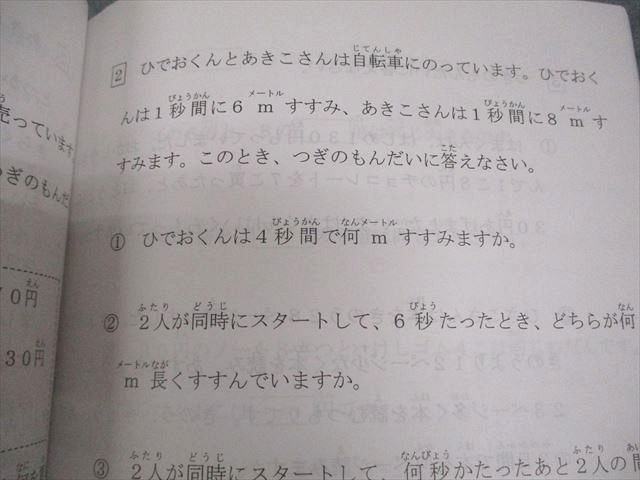 2 ひでおくんとあきこさんは自転車にのっています。ひでおく
んは1秒間に6mすすみ、あきこさんは1秒間に8mす
すみます。このとき、つぎのもんだいに答えなさい。
① ひでおくんは4秒間で何mすすみますか。
② 2人が同時にスタートして、6秒たったとき、どちらが何
m長くすすんでいますか。
③ 2人が同時にスタートして、何秒かたったあと2人の間
売っています
つぎのもんだ
70円
30円